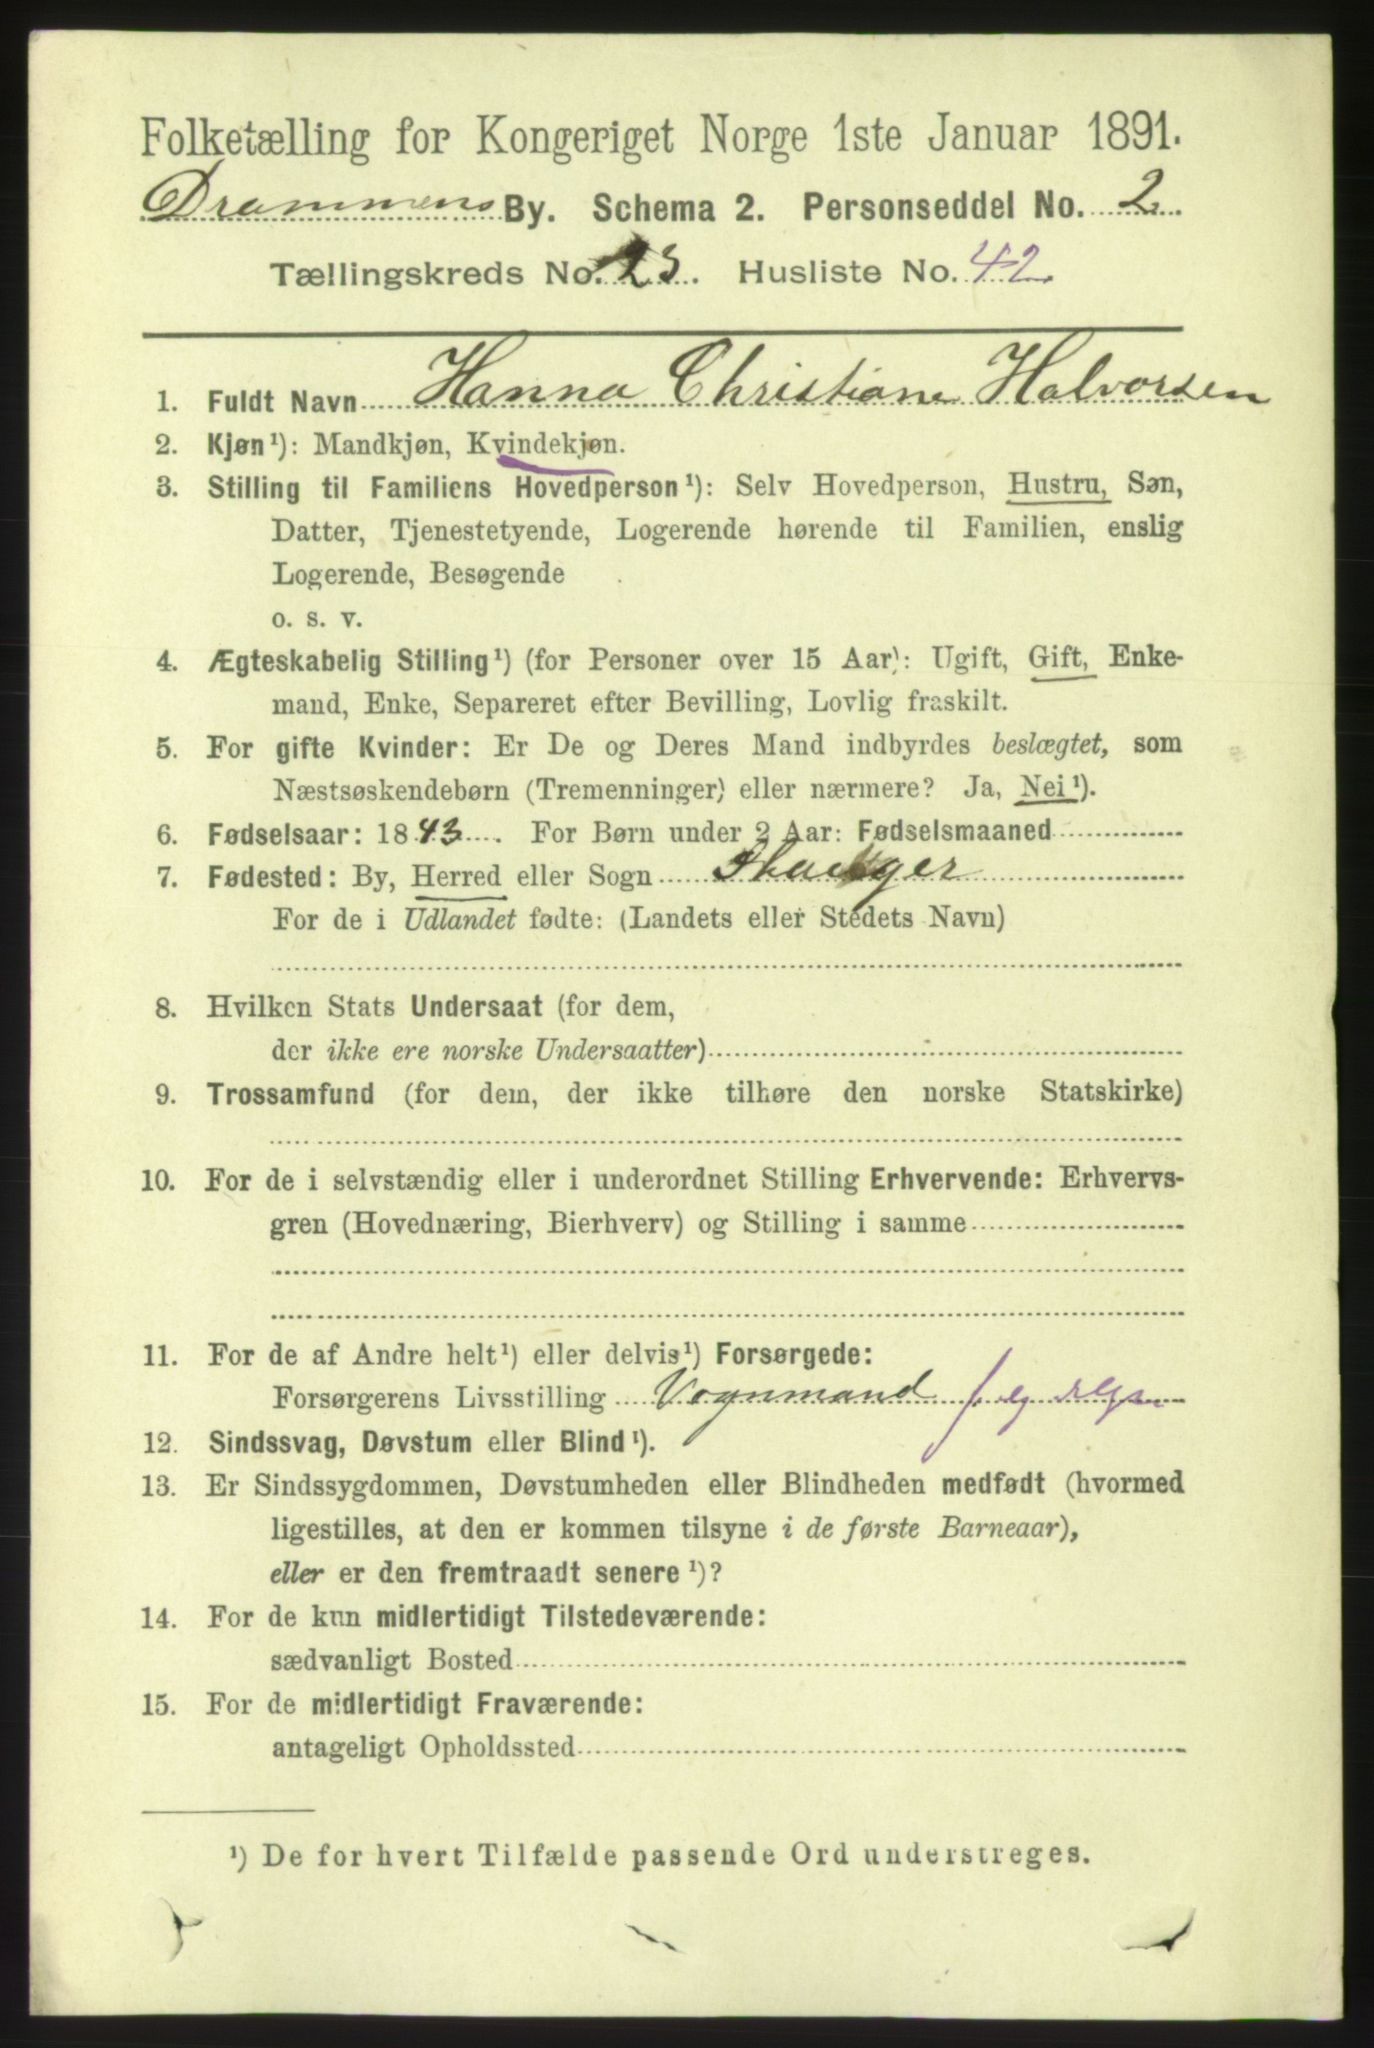 Folketælling for Kongeriget Norge 1ste Januar 1891.
Drammens By. Schema 2. Personseddel No. 2
Tællingskreds No. 23. Husliste No. 42
1. Fuldt Navn Hanna Christiane Halvorsen
2. Kjøn¹): Mandkjøn, Kvindekjøn.
3. Stilling til Familiens Hovedperson¹): Selv Hovedperson, Hustru, Søn,
Datter, Tjenestetyende, Logerende hørende til Familien, enslig
Logerende, Besøgende
o. s. v.
4. Ægteskabelig Stilling¹) (for Personer over 15 Aar): Ugift, Gift, Enke-
mand, Enke, Separeret efter Bevilling, Lovlig fraskilt.
5. For gifte Kvinder: Er De og Deres Mand indbyrdes beslægtet, som
Næstsøskendebørn (Tremenninger) eller nærmere? Ja, Nei¹).
6. Fødselsaar: 1843. For Børn under 2 Aar: Fødselsmaaned
7. Fødested: By, Herred eller Sogn
For de i Udlandet fødte: (Landets eller Stedets Navn)
8. Hvilken Stats Undersaat (for dem,
der ikke ere norske Undersaatter)
9. Trossamfund (for dem, der ikke tilhøre den norske Statskirke)
10. For de i selvstændig eller i underordnet Stilling Erhvervende: Erhvervs-
gren (Hovednæring, Bierhverv) og Stilling i samme
11. For de af Andre helt¹) eller delvis¹) Forsørgede:
Forsørgerens Livsstilling Vognmand
12. Sindssvag, Døvstum eller Blind¹).
13. Er Sindssygdommen, Døvstumheden eller Blindheden medfødt (hvormed
ligestilles, at den er kommen tilsyne i de første Barneaar),
eller er den fremtraadt senere ¹)?
14. For de kun midlertidigt Tilstedeværende:
sædvanligt Bosted
15. For de midlertidigt Fraværende:
antageligt Opholdssted
¹) De for hvert Tilfælde passende Ord understreges.